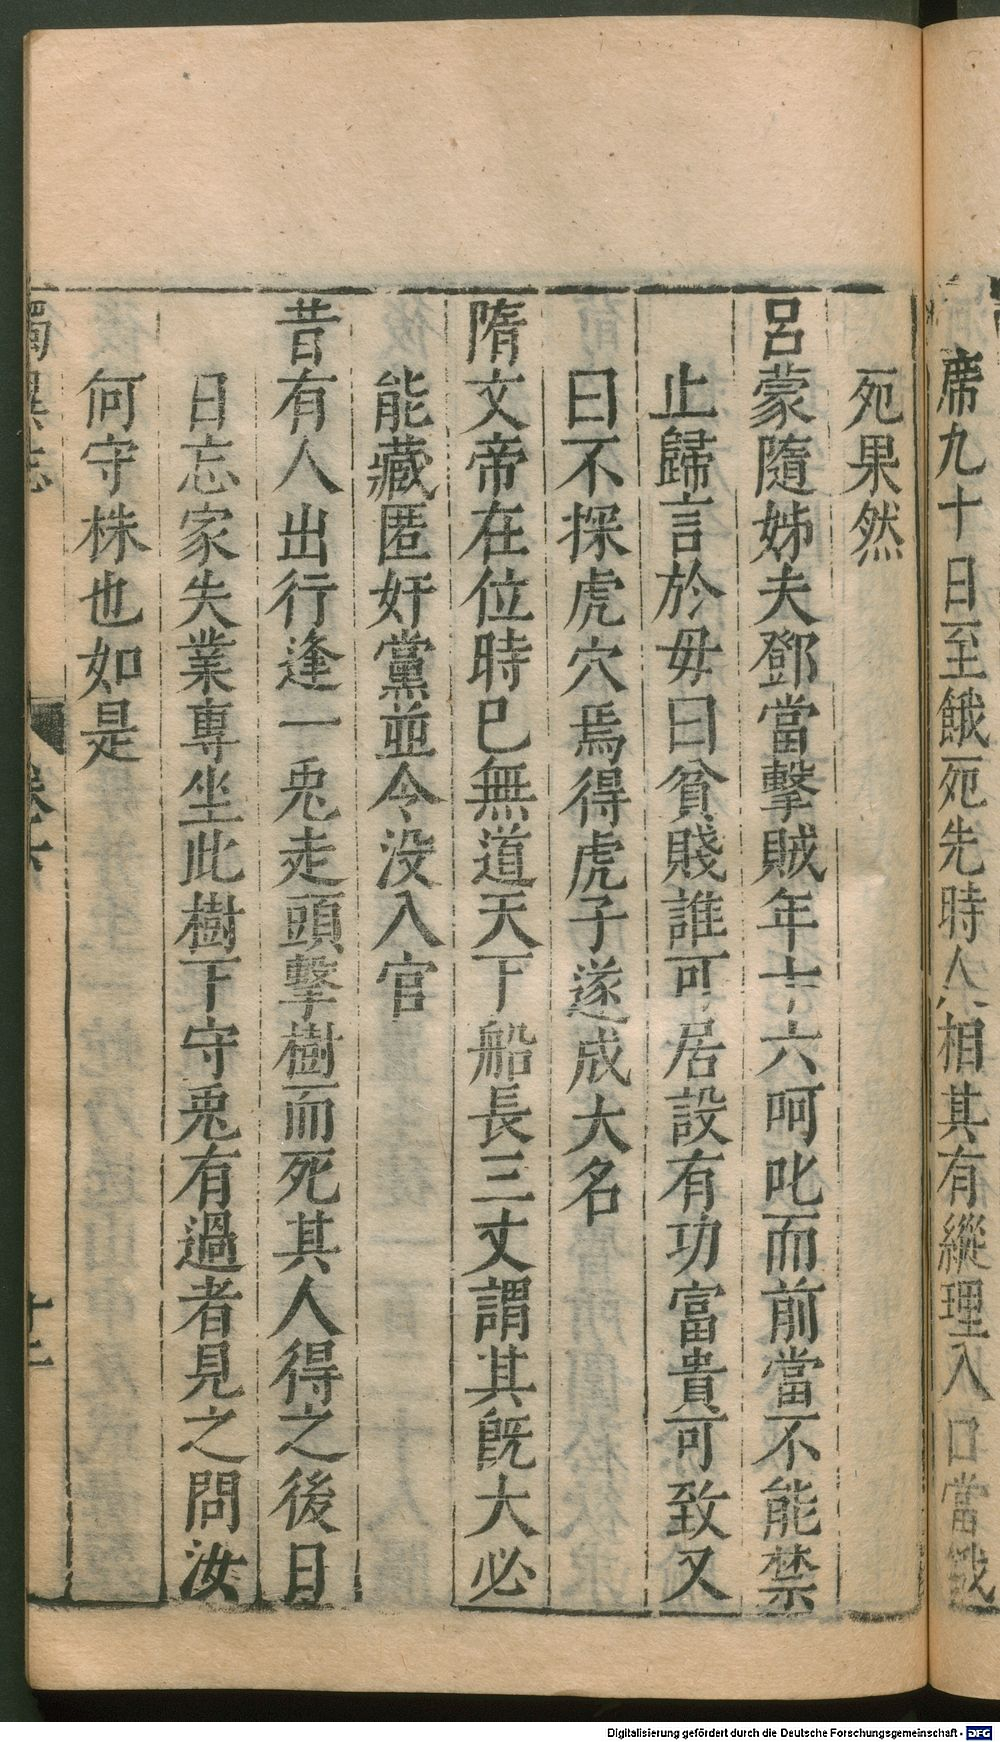 席九十日至餓死先時人相其有縱理入口當餓
死果然
呂蒙隨姊夫鄧當擊賊年十六呵叱而前當不能禁
止歸言於毋曰貧賤誰可居設有功富貴可致又
曰不探虎穴焉得虎子遂成大名
隋文帝在位時已無道天下船長三丈謂其旣大必
能藏匿奸黨並令没入官
昔有人出行逢一兎走頭擊樹而死其人得之後日
日忘家失業專坐此樹下守兎有過者見之問汝
何守株也如是
獨異志 卷六 十二
Digitalisierung gefördert durch die Deutsche Forschungsgemeinschaft - DFG